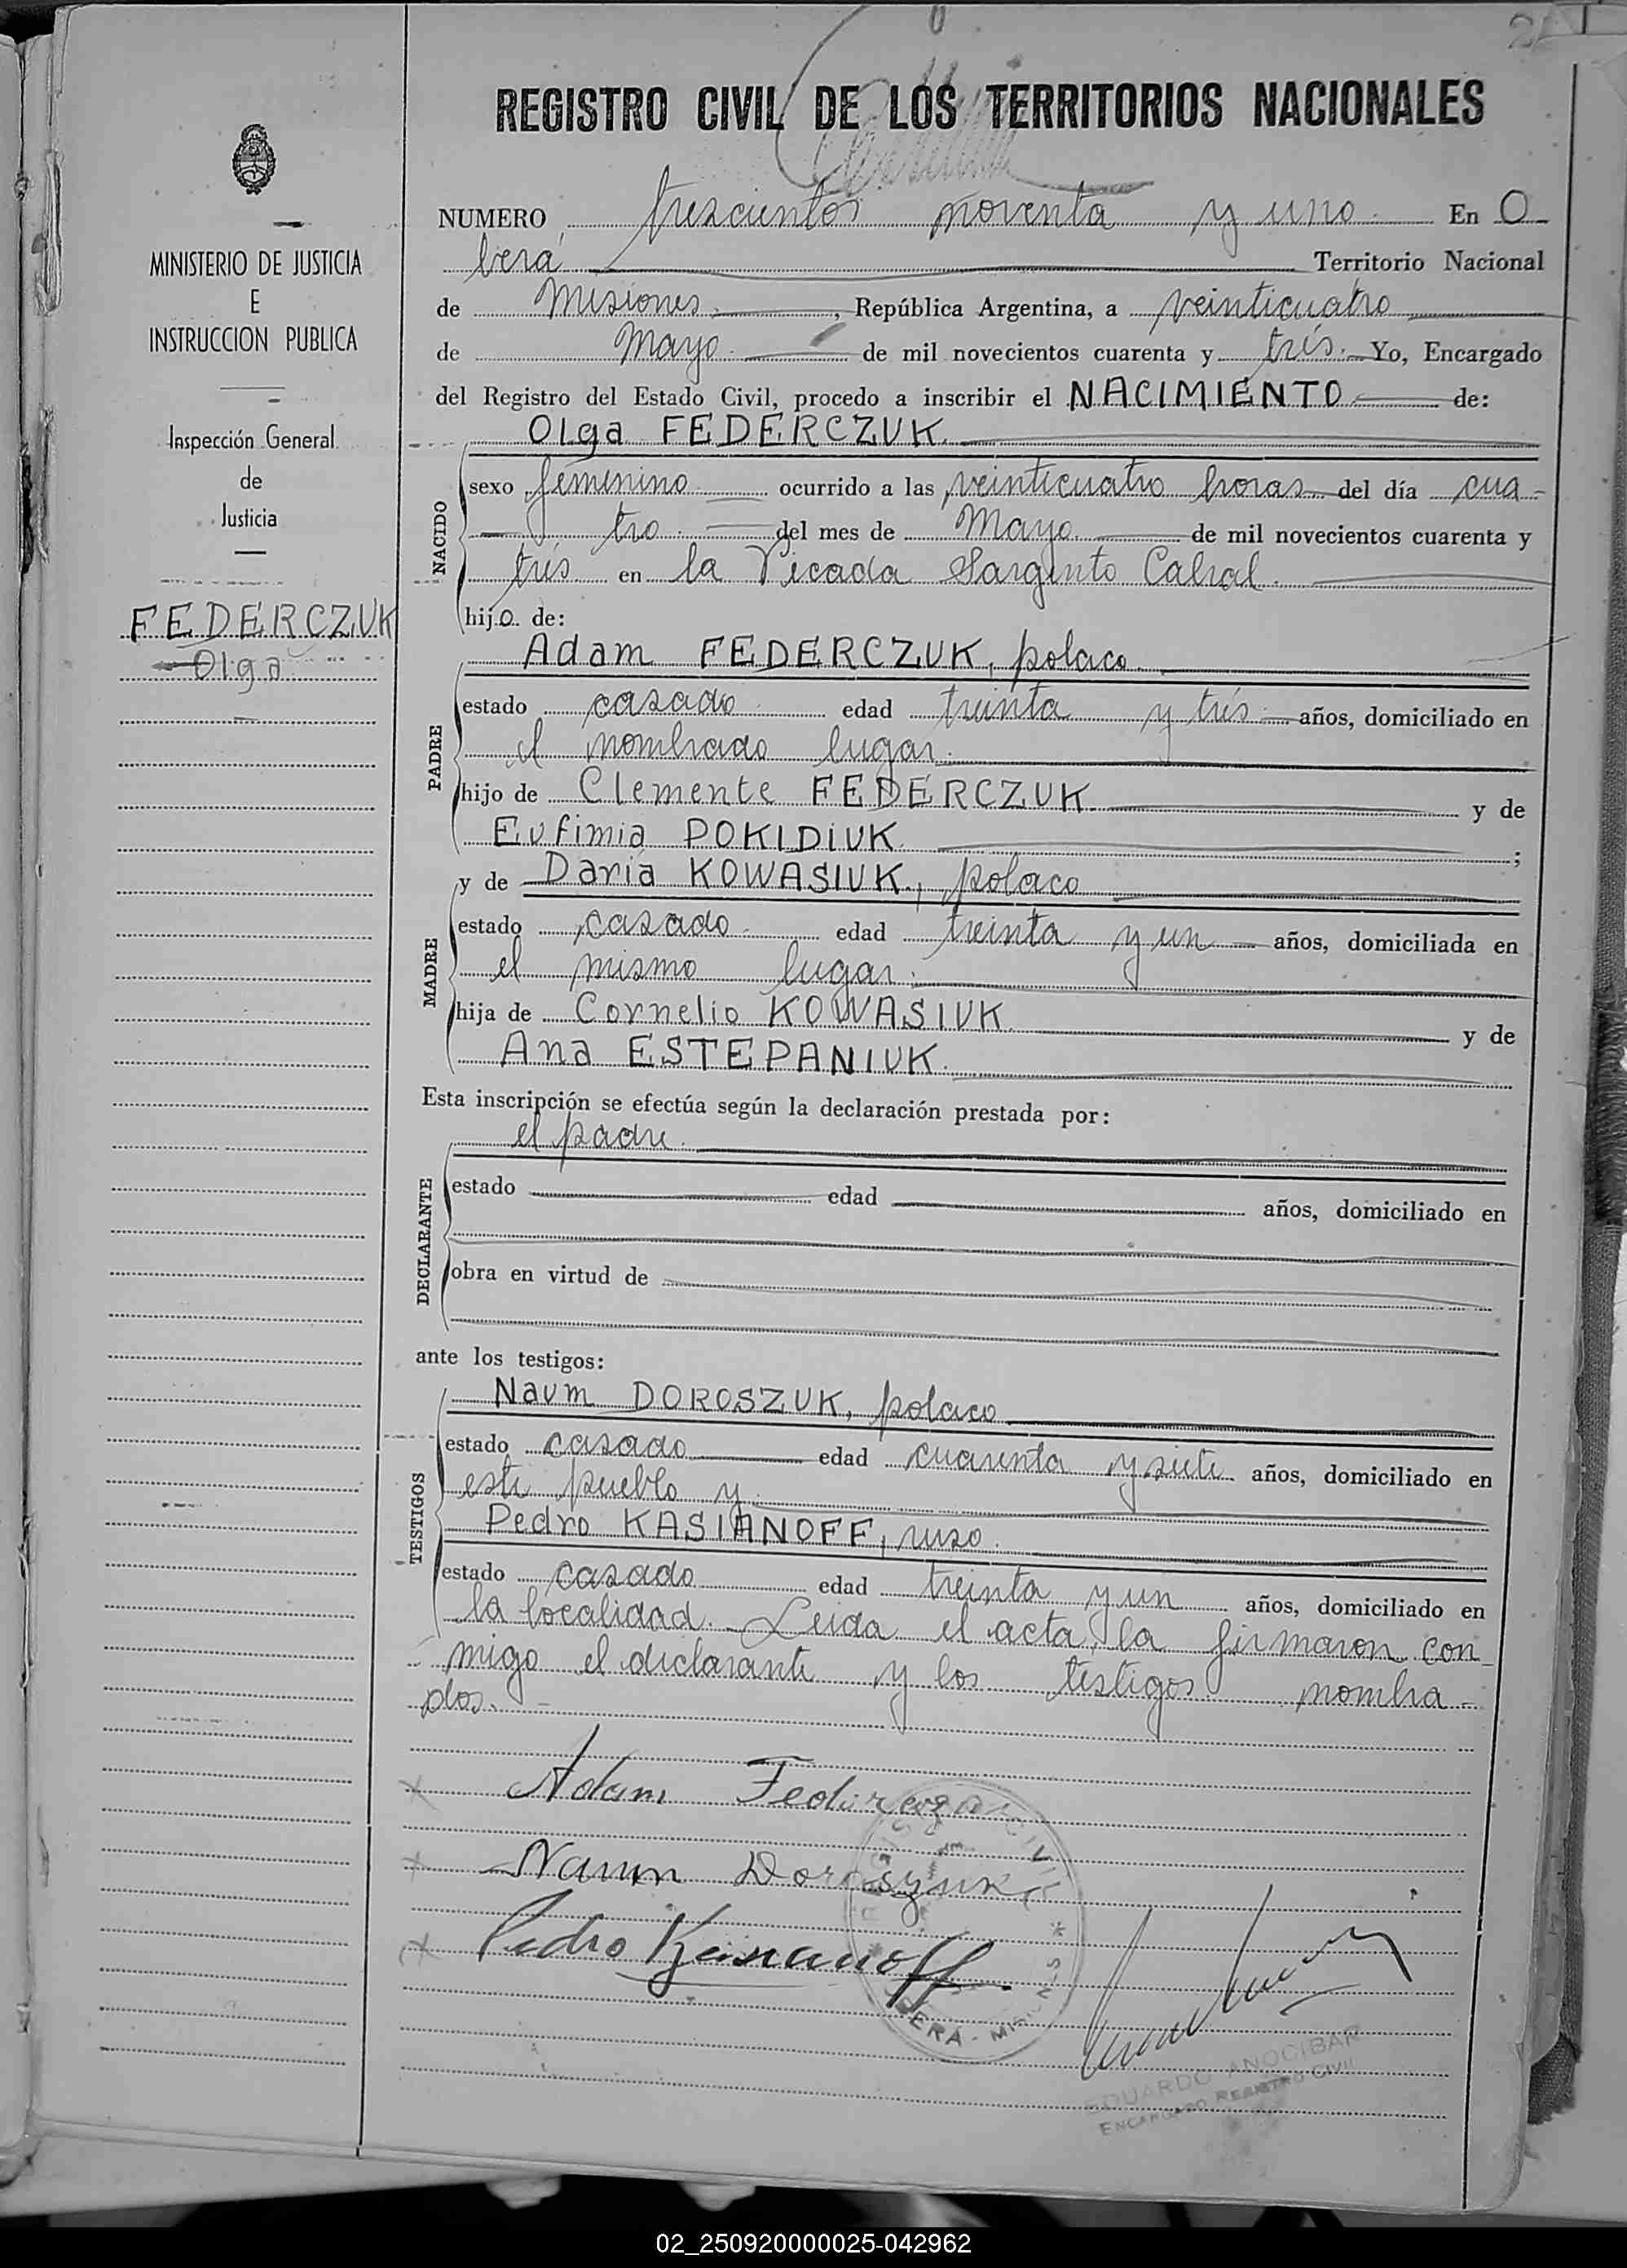 REGISTRO CIVIL DE LOS TERRITORIOS NACIONALES
MINISTERIO DE JUSTICIA
E
INSTRUCCION PUBLICA
Inspección General
de
Justicia
FEDERCZUK
Olga
NUMERO trescientos noventa y uno En O
berá Territorio Nacional
de Misiones, República Argentina, a veinticuatro
de Mayo de mil novecientos cuarenta y trés. Yo, Encargado
del Registro del Estado Civil, procedo a inscribir el NACIMIENTO de:
Olga FEDERCZUK.
NACIDO
sexo femenino ocurrido a las veinticuatro horas del día cua-
tro del mes de Mayo de mil novecientos cuarenta y
trés en la Picada Sargento Cabral.
hijo de:
PADRE
Adam FEDERCZUK, polaco
estado casado edad treinta y trés años, domiciliado en
el nombrado lugar.
hijo de Clemente FEDERCZUK y de
Eufimia POKIDIUK ;
MADRE
y de Daria KOWASIUK, polaco
estado casado edad treinta y un años, domiciliada en
el mismo lugar.
hija de Cornelio KOWASIUK y de
Ana ESTEPANIUK.
Esta inscripción se efectúa según la declaración prestada por:
DECLARANTE
el padre.
estado edad años, domiciliado en
obra en virtud de
ante los testigos:
TESTIGOS
Naum DOROSZUK, polaco
estado casado edad cuarenta y siete años, domiciliado en
este pueblo y
Pedro KASIANOFF, ruso.
estado casado edad treinta y un años, domiciliado en
la localidad. Leida el acta, la firmaron con-
migo el declarante y los testigos nombra-
dos.
Adam
Naum Doroszuk
Pedro
REGISTRO CIVIL
OBERÁ - MISIONES
EDUARDO ANOCIBAR
ENCARGADO REGISTRO CIVIL
02_250920000025-042962